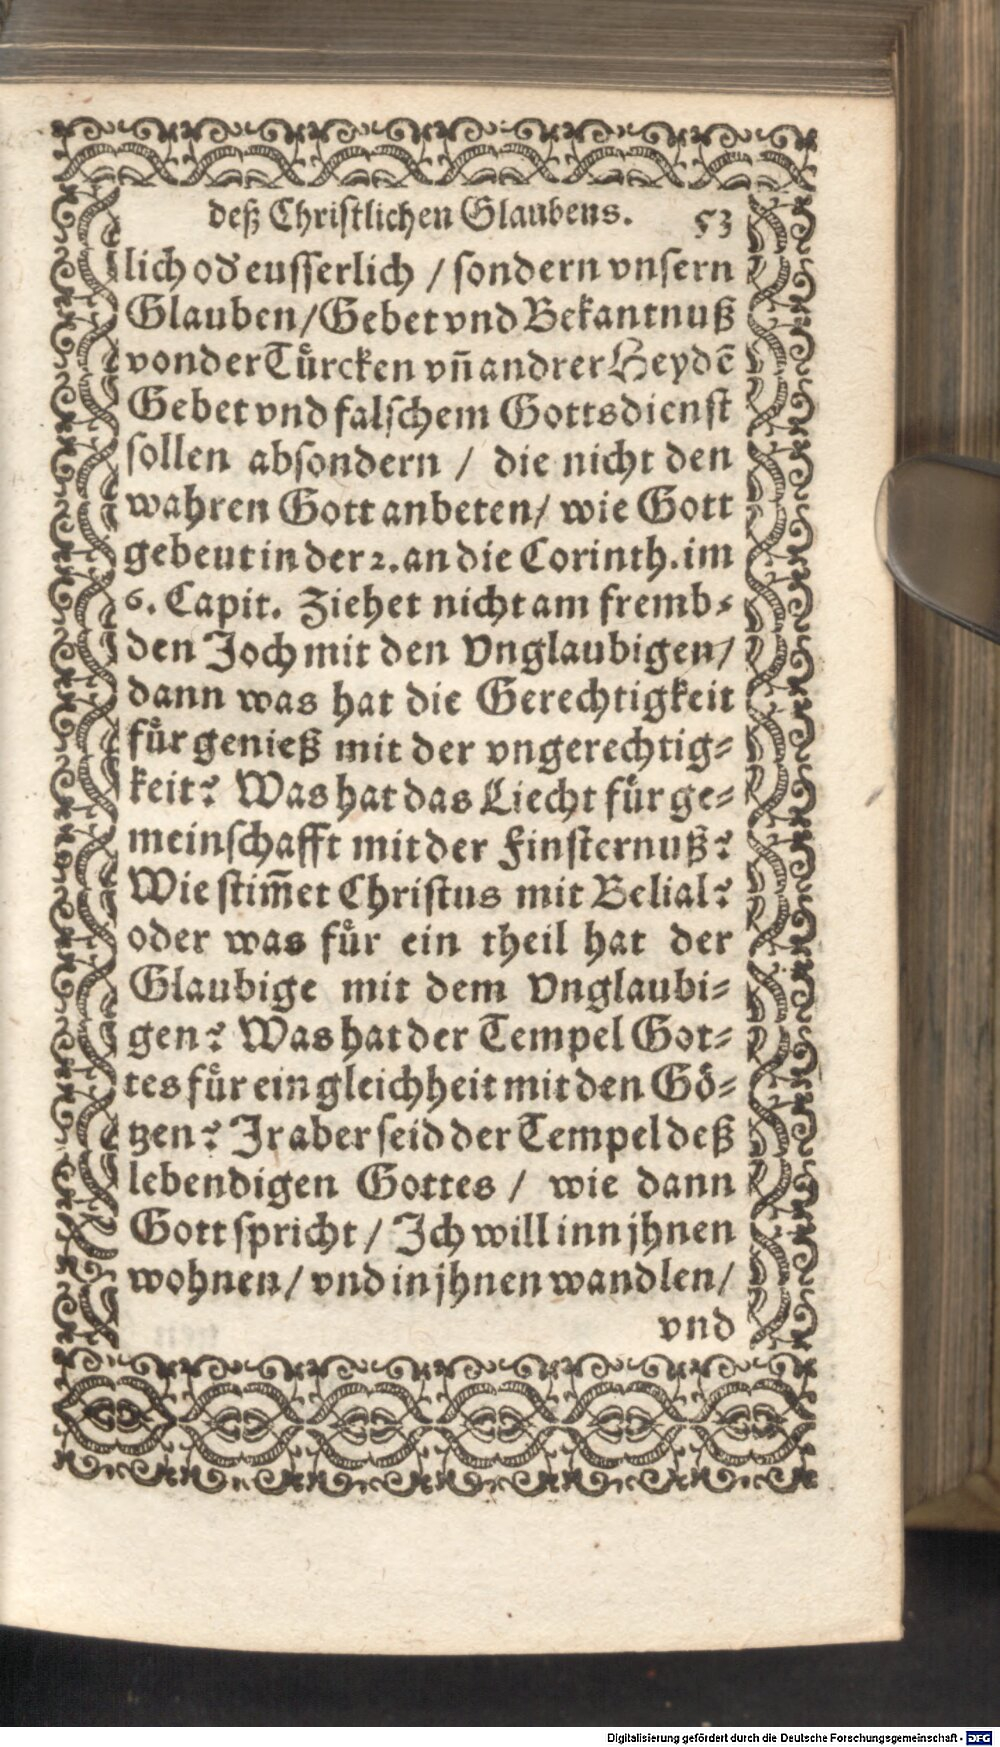 deß Christlichen Glaubens. 53
lich od̕ eusserlich / sondern vnsern
Glauben/Gebet vnd Bekantnuß
von der Tuͤrcken vñ andrer Heydē
Gebet vnd falschem Gottsdienst
sollen absondern / die nicht den
wahren Gott anbeten/ wie Gott
gebeut in der 2. an die Corinth. im
6. Capit. Ziehet nicht am fremb⸗
den Joch mit den Vnglaubigen/
dann was hat die Gerechtigkeit
fuͤr genieß mit der vngerechtig⸗
keit? Was hat das Liecht fuͤr ge⸗
meinschafft mit der Finsternuß?
Wie stim̃et Christus mit Belial?
oder was fuͤr ein theil hat der
Glaubige mit dem Vnglaubi⸗
gen? Was hat der Tempel Got⸗
tes fuͤr ein gleichheit mit den Goͤ⸗
tzen? Jr aber seid der Tempel deß
lebendigen Gottes / wie dann
Gott spricht / Jch will inn jhnen
wohnen/ vnd in jhnen wandlen/
vnd
Digitalisierung gefördert durch die Deutsche Forschungsgemeinschaft - DFG